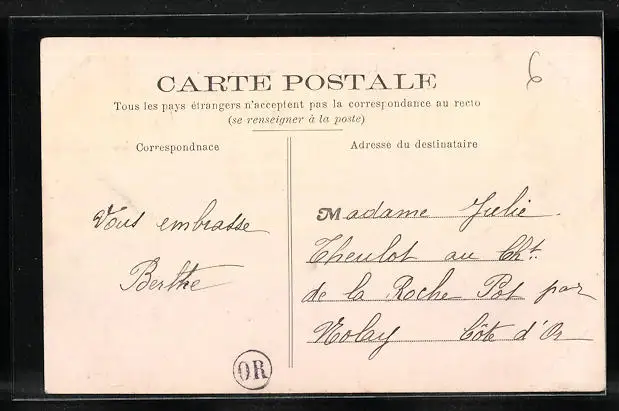 6
CARTE POSTALE
Tous les pays étrangers n'acceptent pas la correspondance au recto
(se renseigner à la poste)
Correspondnace
Vous embrasse
Berthe
Adresse du destinataire
Madame Julie
Theulot au Cht.
de la Roche Pot par
Nolay Côte d'Or
OR